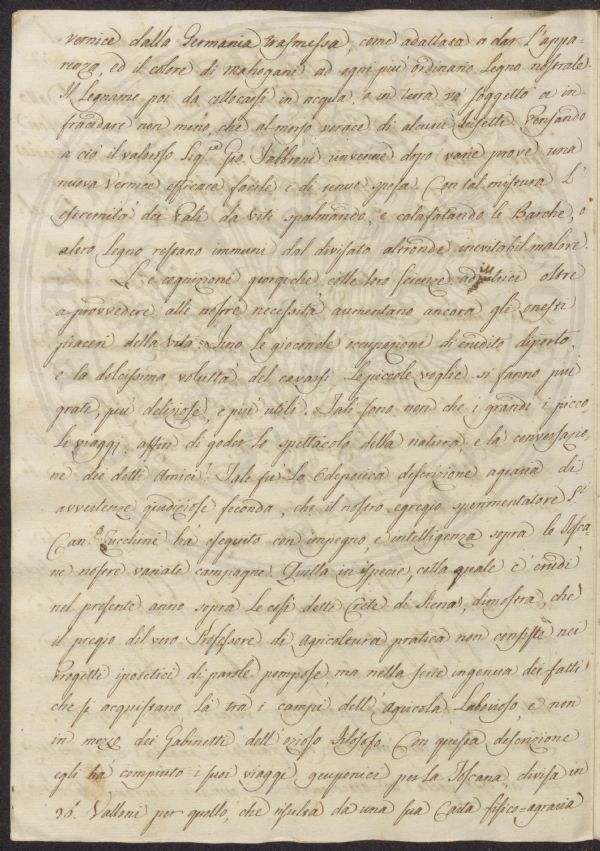 vernice dalla Germania trasmessa, come adattata a dar l'appa-
renza, ed il colore di mahogani ad ogni più ordinario Legno nostrale.
Il Legname poi da collocarsi in acqua, o in terra va soggetto a in-
fracidare non meno, che al morso vorace di alcuni Insetti. Pensando
a ciò il valoroso Sig.r Gio. Fabbroni invenne dopo varie prove una
nuova vernice efficace facile e di tenue spesa. Con tal mistura l'
estremità dei Pali da viti spalmando, e calafatando le Barche, o
altro Legno restano immuni dal divisato altronde inevitabil malore.
Le cognizioni georgiche colle loro scienze adiutrici oltre
a provvedere alle nostre necessità aumentano ancora gli onesti
piaceri della vita. Sino le gioconde occupazioni di erudito diporto,
e la dolcissima voluttà del cavarsi le piccole voglie si fanno più
grate, più deliziose, e più utili. Tali sono non che i grandi i picco-
li viaggi, affin di goder lo spettacolo della natura, e la conversazio-
ne dei dotti Amici! Tale fù la Odeporica descrizione agraria di
avvertenze giudiciose feconda, che il nostro egregio sperimentatore S.r
Can.o Zucchini ha eseguito con impegno e intelligenza sopra le Tosca-
ne nostre variate campagne. Quella in ispecie, colla quale ci erudì
nel presente anno sopra le così dette Crete di Siena, dimostra, che
il pregio del vero Professore di Agricoltura pratica non consiste nei
Progetti ipotetici di parole pompose ma nella serie ingenua dei fatti
che si acquistano là tra i campi dell'Agricola Laborioso, e non
in mezzo dei Gabinetti dell'ozioso Filosofo. Con questa descrizione
egli ha compiuto i suoi viaggi geoponici per la Toscana divisa in
36. Valloni per quello, che risulta da una sua Carta fisico=agraria